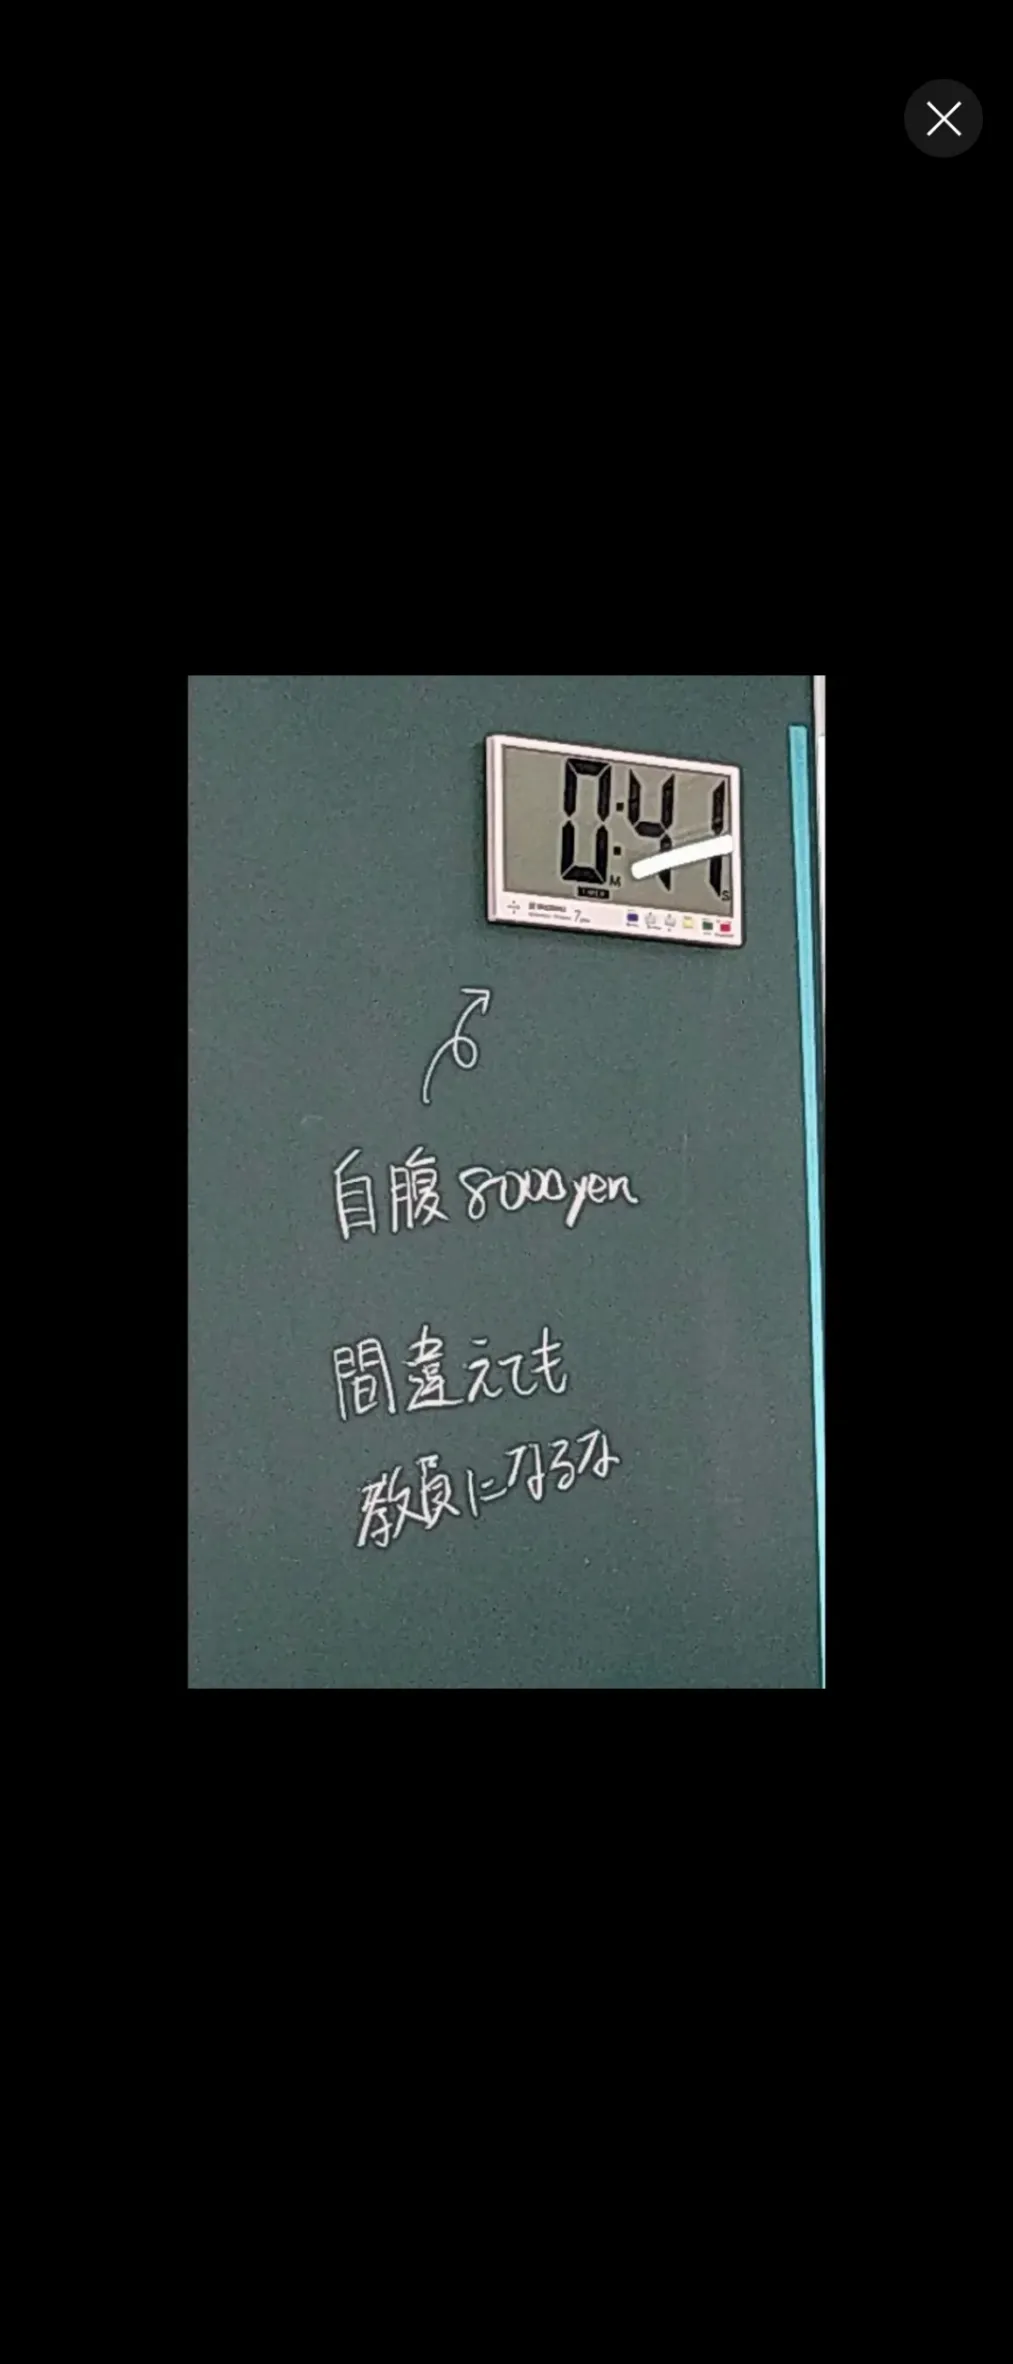 0:41
M
S
TIMER
自腹 8000yen
間違えても
教員になるな